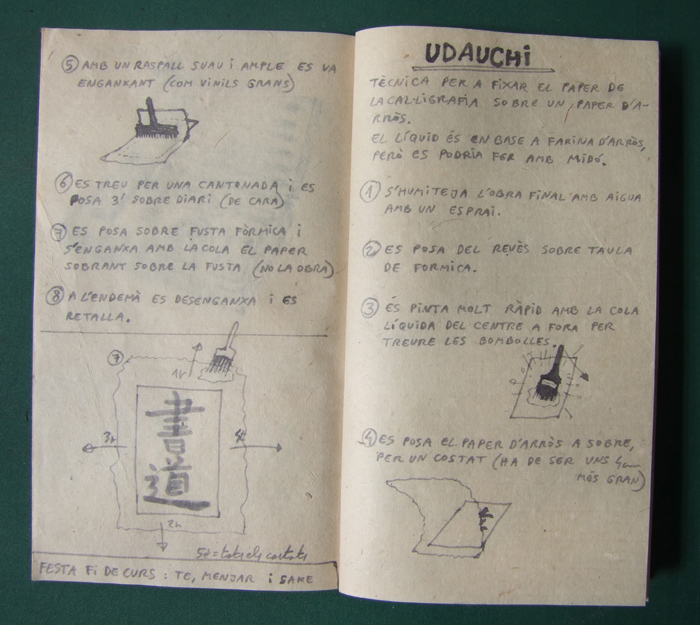 ⑤ AMB UN RASPALL SUAU i AMPLE ES VA
ENGANXANT (COM VINILS GRANS)
⑥ ES TREU PER UNA CANTONADA i ES
POSA 3' SOBRE DIARI (DE CARA)
⑦ ES POSA SOBRE FUSTA FÒRMICA i
S'ENGANXA AMB LA COLA EL PAPER
SOBRANT SOBRE LA FUSTA (NO LA OBRA)
⑧ A L'ENDEMÀ ES DESENGANXA i ES
RETALLA.
⑦
1r
3r
4t
書道
2n
5è = tots els costats
FESTA FI DE CURS : TE, MENJAR i SAKE
UDAUCHi
TÈCNICA PER A FIXAR EL PAPER DE
LA CAL·LIGRAFIA SOBRE UN PAPER D'A-
RRÒS.
EL LÍQUID ÉS EN BASE A FARINA D'ARRÒS,
PERÒ ES PODRIA FER AMB MIDÓ.
① S'HUMITEJA L'OBRA FINAL AMB AIGUA
AMB UN ESPRAI.
② ES POSA DEL REVÉS SOBRE TAULA
DE FORMICA.
③ ÉS PINTA MOLT RÀPID AMB LA COLA
LÍQUIDA DEL CENTRE A FORA PER
TREURE LES BOMBOLLES.
④ ES POSA EL PAPER D'ARRÒS A SOBRE,
PER UN COSTAT (HA DE SER UNS 4cm
MÉS GRAN)